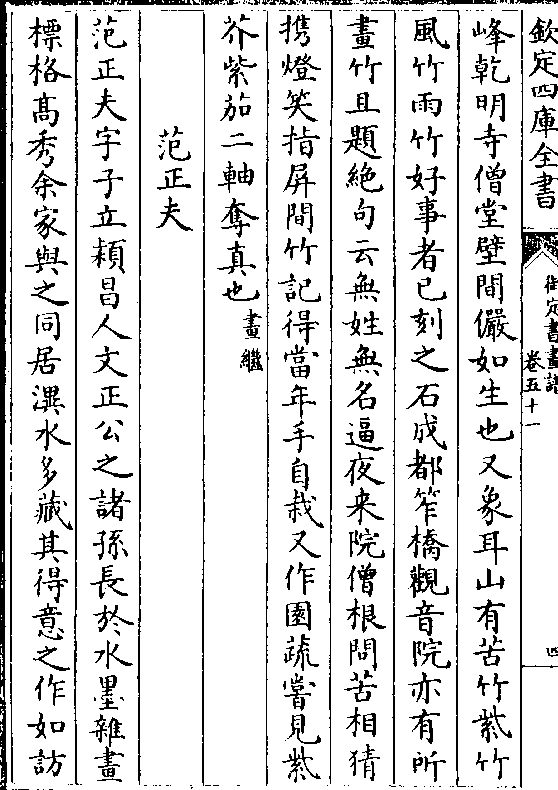 欽定四庫全書
御定書畫譜
卷五十一
四
峰乾明寺僧堂壁間儼如生也又象耳山有苦竹紫竹
風竹雨竹好事者已刻之石成都笮橋觀音院亦有所
畫竹且題絶句云無姓無名逼夜来院僧根問苦相猜
携燈笑指屏間竹記得當年手自栽又作園蔬嘗見紫
芥紫茄二軸奪真也畫繼
范正夫
范正夫字子立穎昌人文正公之諸孫長於水墨雜畫
標格髙秀余家與之同居潩水多藏其得意之作如訪